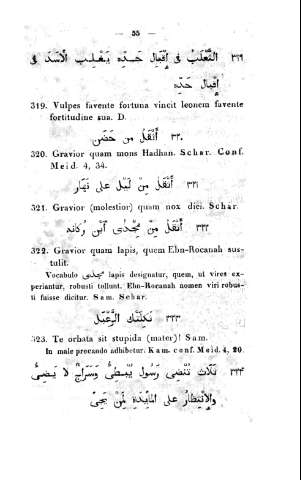 — 55 —
٣١٩ الثَّعْلَبُ فِى إِقْبَالِ جَدِّهِ يَغْلِبُ الْأَسَدَ فِى
إِقْبَالِ جَدِّهِ
319. Vulpes favente fortuna vincit leonem favente
fortitudine sua. D.
٣٢٠ أَثْقَلُ مِنْ حَضَنٍ
320. Gravior quam mons Hadhan. Schar. Conf.
Meid. 4, 34.
٣٢١ أَثْقَلُ مِنْ لَيْلٍ عَلَى نَهَارٍ
321. Gravior (molestior) quam nox dici. Schar.
٣٢٢ أَثْقَلُ مِنْ مِجْذَى ابْنِ رُكَانَه
322. Gravior quam lapis, quem Ebn-Rocanah sus-
tulit.
Vocabulo مجذى lapis designatur, quem, ut vires ex-
periantur, robusti tollunt. Ebn-Rocanah nomen viri robus-
ti fuisse dicitur. Sam. Schar.
٣٢٣ ثَكِلَتْكَ الرَّعْبَلُ
323. Te orbata sit stupida (mater)! Sam.
In male precando adhibetur. Kam. conf. Meid. 4, 20.
٣٢٤ ثَلَاثٌ تُضْنِى رَسُولٌ يُبْطِئُ وَسِرَاجٌ لَا يُضِئُ
وَالْإِنْتِظَارُ عَلَى الْمَائِدَةِ لِمَنْ يَجِئُ